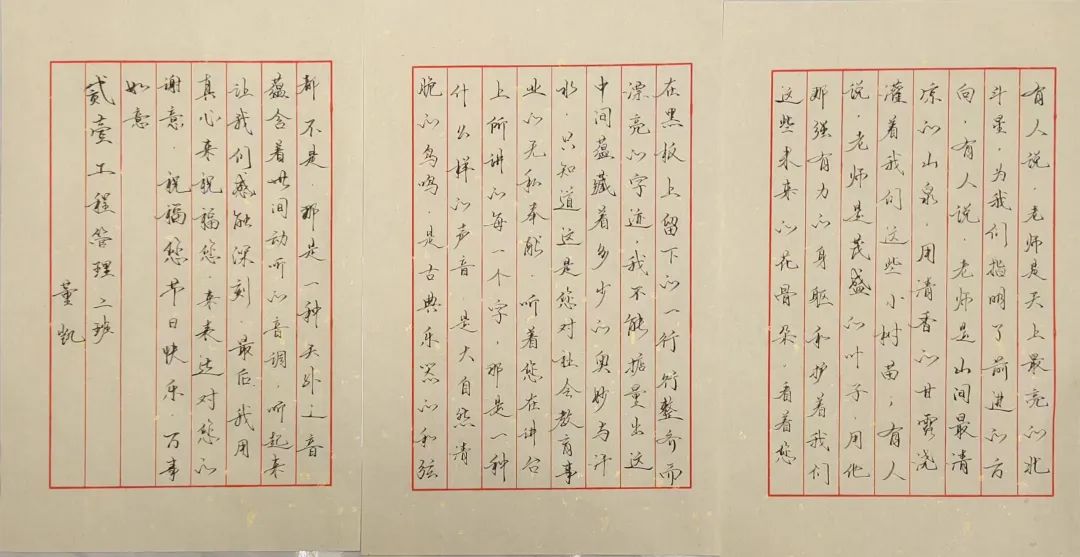 有人说，老师是天上最亮的北
斗星，为我们指明了前进的方
向，有人说，老师是山间最清
凉的山泉，用清香的甘露浇
灌着我们这些小树苗；有人
说，老师是茂盛的叶子，用他
那强有力的身躯和护着我们
这些未来的花骨朵，看着您
在黑板上留下的一行行整齐而
漂亮的字迹，我不能掂量出这
中间蕴藏着多少的奥妙与汗
水，只知道这是您对社会教育事
业的无私奉献，听着您在讲台
上所讲的每一个字，那是一种
什么样的声音，是大自然清
脆的鸟鸣，是古典乐器的和弦
都不是，那是一种天外之音
蕴含着世间动听的音调，听起来
让我们感触深刻，最后，我用
真心来祝福您，来表达对您的
谢意，祝福您节日快乐，万事
如意
贰壹工程管理二班
董凯